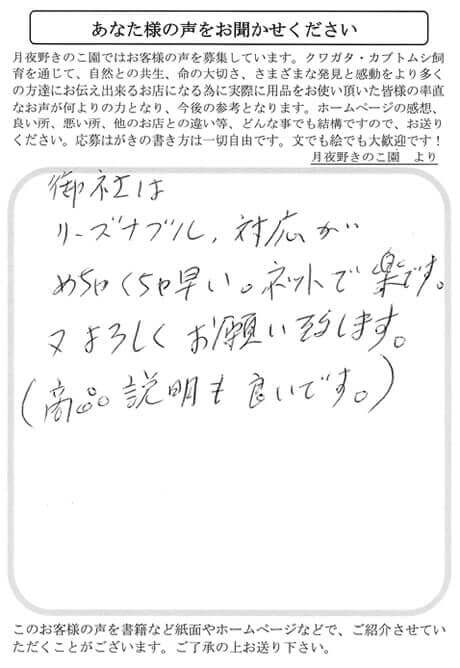 あなた様の声をお聞かせください
月夜野きのこ園ではお客様の声を募集しています。クワガタ・カブトムシ飼
育を通じて、自然との共生、命の大切さ、さまざまな発見と感動をより多く
の方達にお伝え出来るお店になる為に実際に用品をお使い頂いた皆様の率直
なお声が何よりの力となり、今後の参考となります。ホームページの感想、
良い所、悪い所、他のお店との違い等、どんな事でも結構ですので、お送り
ください。応募はがきの書き方は一切自由です。文でも絵でも大歓迎です！
月夜野きのこ園　より
御社は
リーズナブル、対応が
めちゃくちゃ早い。ネットで楽です。
又よろしくお願い致します。
（商品説明も良いです。）
このお客様の声を書籍など紙面やホームページなどで、ご紹介させてい
ただくことがございます。ご了承の上お送り下さい。